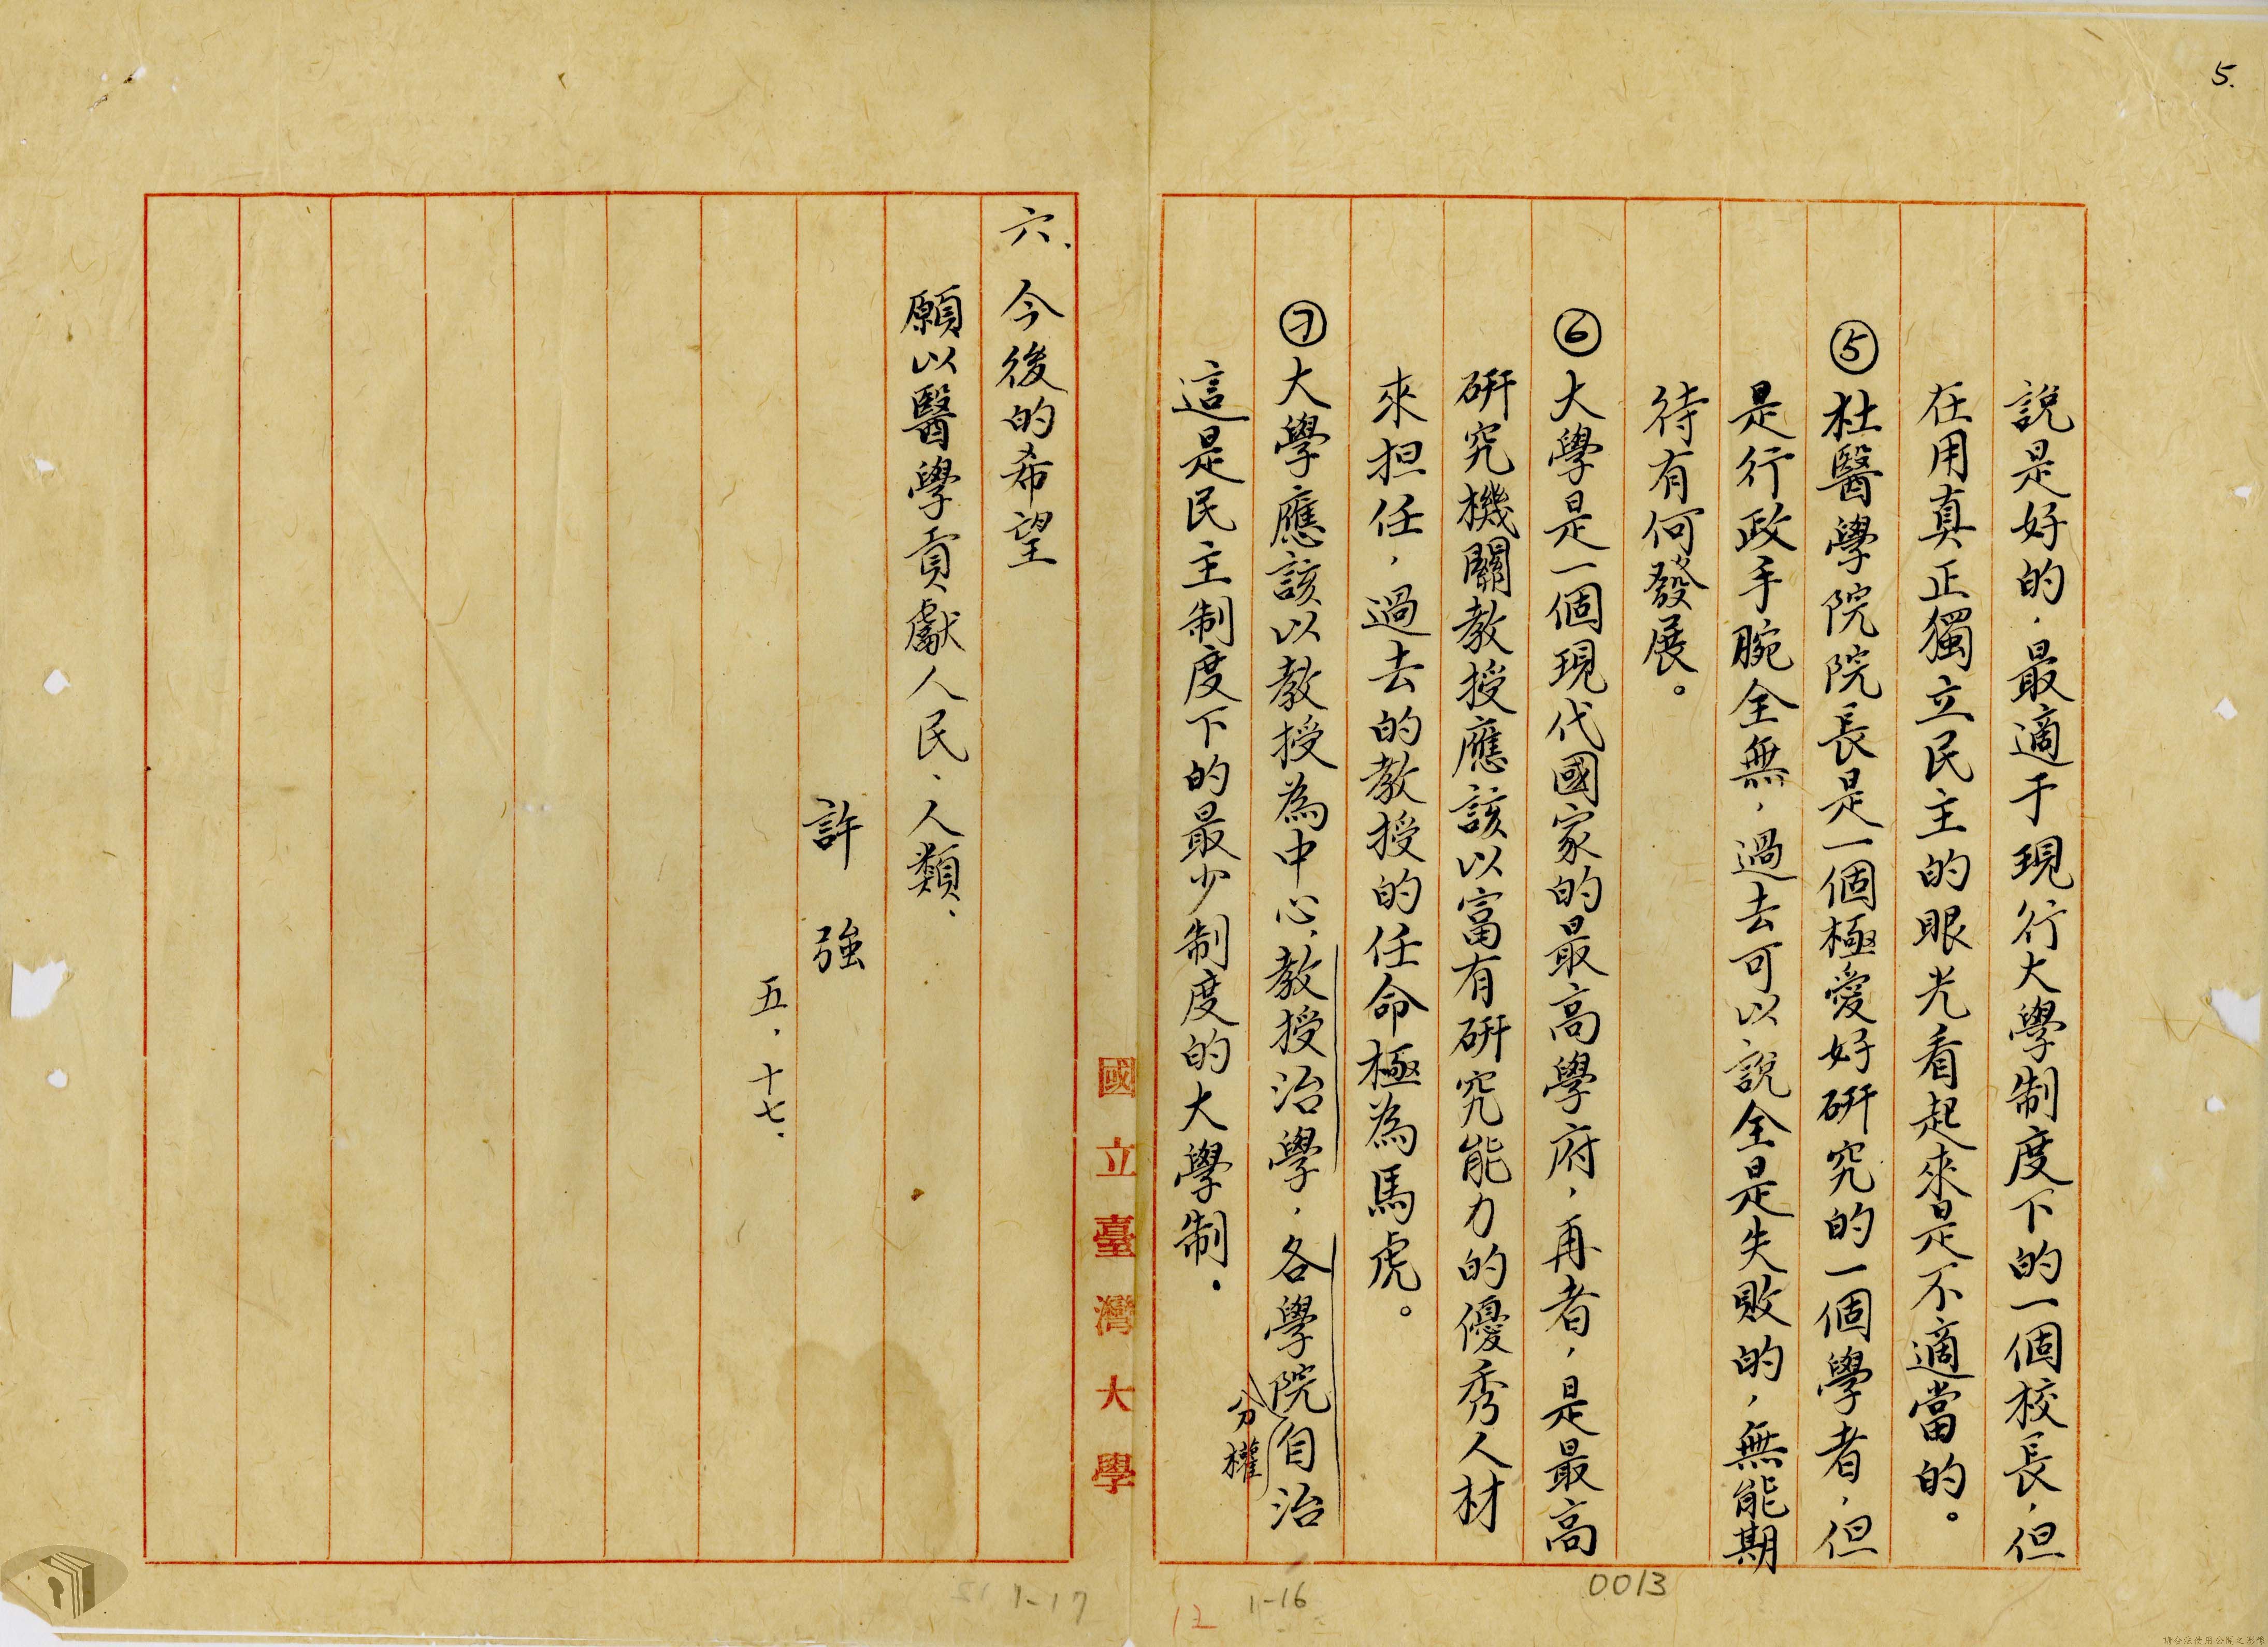 5.
說是好的，最適于現行大學制度下的一個校長，但
在用真正獨立民主的眼光看起來是不適當的。
⑤杜醫學院院長是一個極愛好研究的一個學者，但
是行政手腕全無，過去可以說全是失敗的，無能期
待有何發展。
⑥大學是一個現代國家的最高學府，再者，是最高
研究機關教授應該以富有研究能力的優秀人材
來担任，過去的教授的任命極為馬虎。
⑦大學應該以教授為中心，教授治學，各學院分權自治
這是民主制度下的最少制度的大學制．
國立臺灣大學
六、今後的希望
願以醫學貢獻人民、人類、
許強
五，十七．
0013
1-16
12
1-17
請合法使用公開之影像